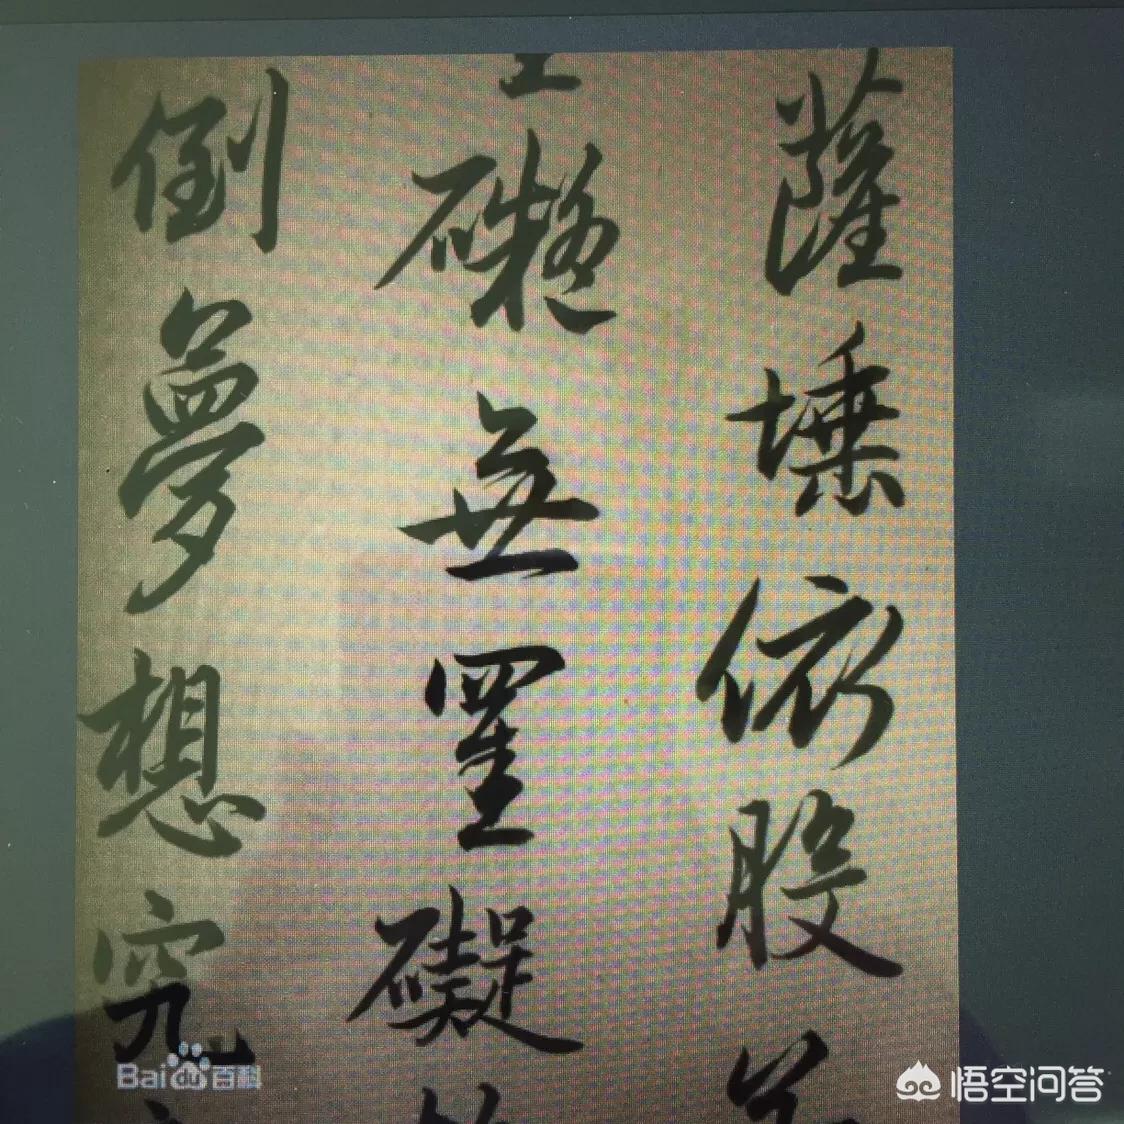 薩埵依股
礙無罣礙
倒夢想究
Baidu百科
悟空问答